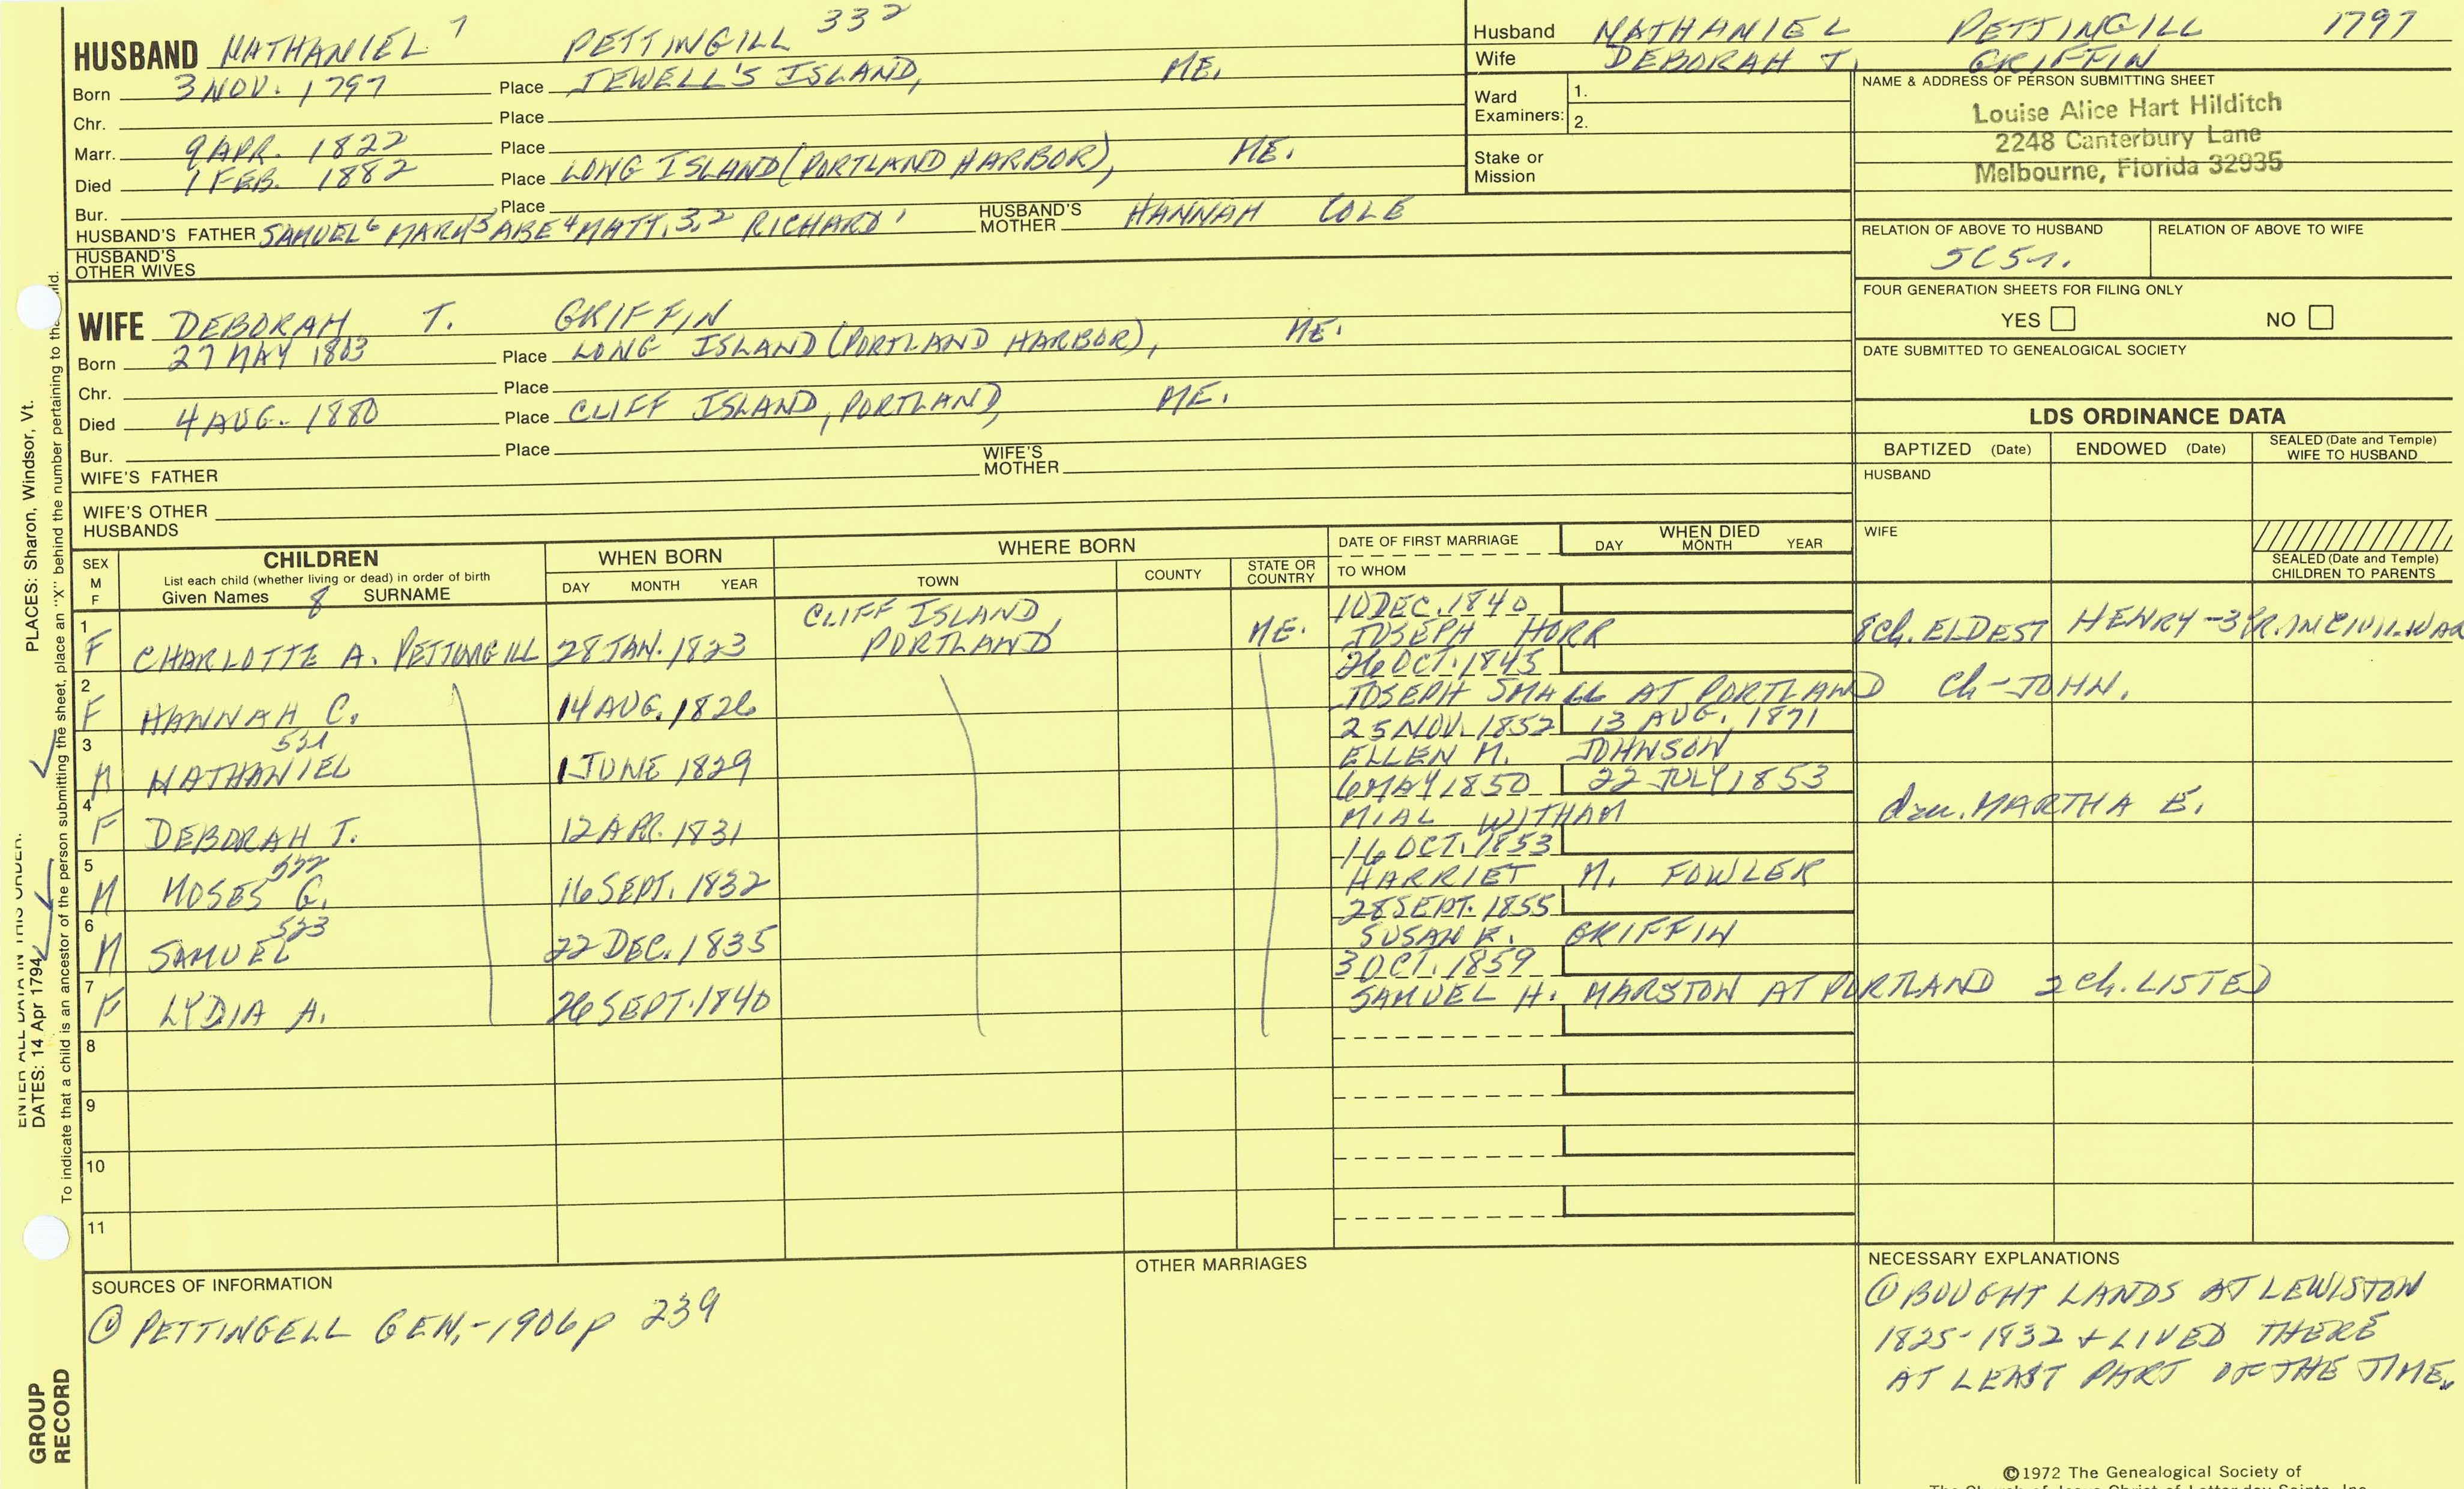 HUSBAND NATHANIEL 7 PETTINGILL 332
Born 3 NOV. 1797 Place JEWELL'S ISLAND, ME.
Chr. Place
Marr. 9 APR. 1822 Place
Died 1 FEB. 1882 Place LONG ISLAND (PORTLAND HARBOR), ME.
Bur. Place
HUSBAND'S FATHER SAMUEL 6 MARK 5 ABE 4 MATT. 3,2 RICHARD 1 HUSBAND'S MOTHER HANNAH COLE
HUSBAND'S OTHER WIVES
WIFE DEBORAH T. GRIFFIN
Born 27 MAY 1803 Place LONG ISLAND (PORTLAND HARBOR), ME.
Chr. Place
Died 4 AUG. 1880 Place CLIFF ISLAND, PORTLAND, ME.
Bur. Place
WIFE'S FATHER WIFE'S MOTHER
WIFE'S OTHER HUSBANDS
Husband NATHANIEL PETTINGILL 1797
Wife DEBORAH T. GRIFFIN
Ward Examiners: 1.
2.
Stake or Mission
NAME & ADDRESS OF PERSON SUBMITTING SHEET
Louise Alice Hart Hilditch
2248 Canterbury Lane
Melbourne, Florida 32935
RELATION OF ABOVE TO HUSBAND RELATION OF ABOVE TO WIFE
5C5r.
FOUR GENERATION SHEETS FOR FILING ONLY
YES NO
DATE SUBMITTED TO GENEALOGICAL SOCIETY
LDS ORDINANCE DATA
BAPTIZED (Date) ENDOWED (Date) SEALED (Date and Temple) WIFE TO HUSBAND
HUSBAND
WIFE
SEALED (Date and Temple) CHILDREN TO PARENTS
SEX M F
CHILDREN
List each child (whether living or dead) in order of birth
Given Names 8 SURNAME
WHEN BORN
DAY MONTH YEAR
WHERE BORN
TOWN COUNTY STATE OR COUNTRY
DATE OF FIRST MARRIAGE
TO WHOM
WHEN DIED
DAY MONTH YEAR
1 F CHARLOTTE A. PETTINGILL 28 JAN. 1823 CLIFF ISLAND, PORTLAND, ME. 10 DEC. 1840
JOSEPH HORR 8 Ch. ELDEST HENRY - 3 YR. IN CIVIL WAR
2 F HANNAH C. 14 AUG. 1826 26 OCT. 1845
JOSEPH SMALL AT PORTLAND Ch - JOHN.
3 M NATHANIEL 521 1 JUNE 1829 25 NOV. 1852 13 AUG. 1871
ELLEN M. JOHNSON
4 F DEBORAH T. 12 APR. 1831 6 MAY 1850 22 JULY 1853
MIAL WITHAM dau. MARTHA E.
5 M MOSES G. 522 16 SEPT. 1832 16 OCT. 1853
HARRIET M. FOWLER
6 M SAMUEL 523 22 DEC. 1835 28 SEPT. 1855
SUSAN R. GRIFFIN
7 F LYDIA A. 26 SEPT. 1840 3 OCT. 1859
SAMUEL H. MARSTON AT PORTLAND 2 Ch. LISTED
8
9
10
11
SOURCES OF INFORMATION
① PETTINGELL GEN, - 1906 p 239
OTHER MARRIAGES
NECESSARY EXPLANATIONS
① BOUGHT LANDS AT LEWISTON
1825-1832 + LIVED THERE
AT LEAST PART OF THE TIME.
©1972 The Genealogical Society of
PLACES: Sharon, Windsor, Vt.
DATES: 14 Apr 1794
To indicate that a child is an ancestor of the person submitting the sheet, place an "X" behind the number pertaining to
GROUP
RECORD